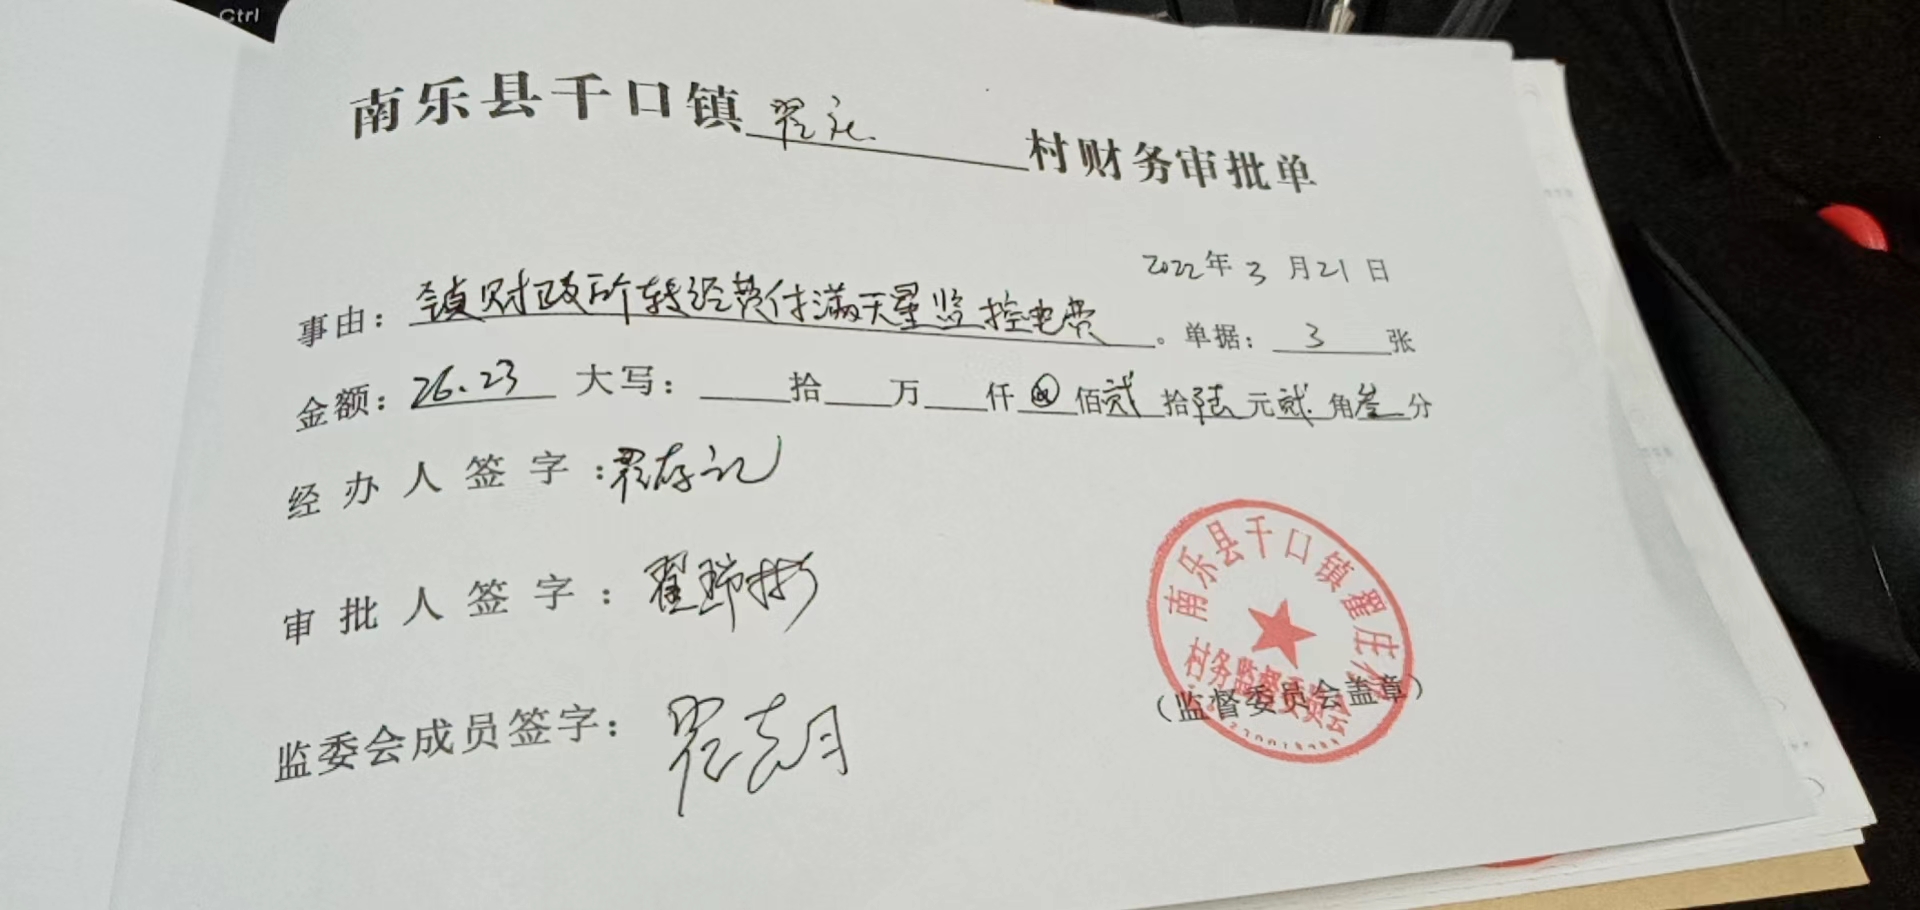 Ctrl
南乐县千口镇翟庄村财务审批单
2022年3月21日
事由：镇财政所转经费付满天星监控电费。单据：3张
金额：26.23 大写：拾万仟⊗佰贰拾陆元贰角叁分
经办人签字：翟存礼
审批人签字：翟瑞彬
监委会成员签字：翟志月
南乐县千口镇翟庄村
村务监督委员会
（监督委员会盖章）